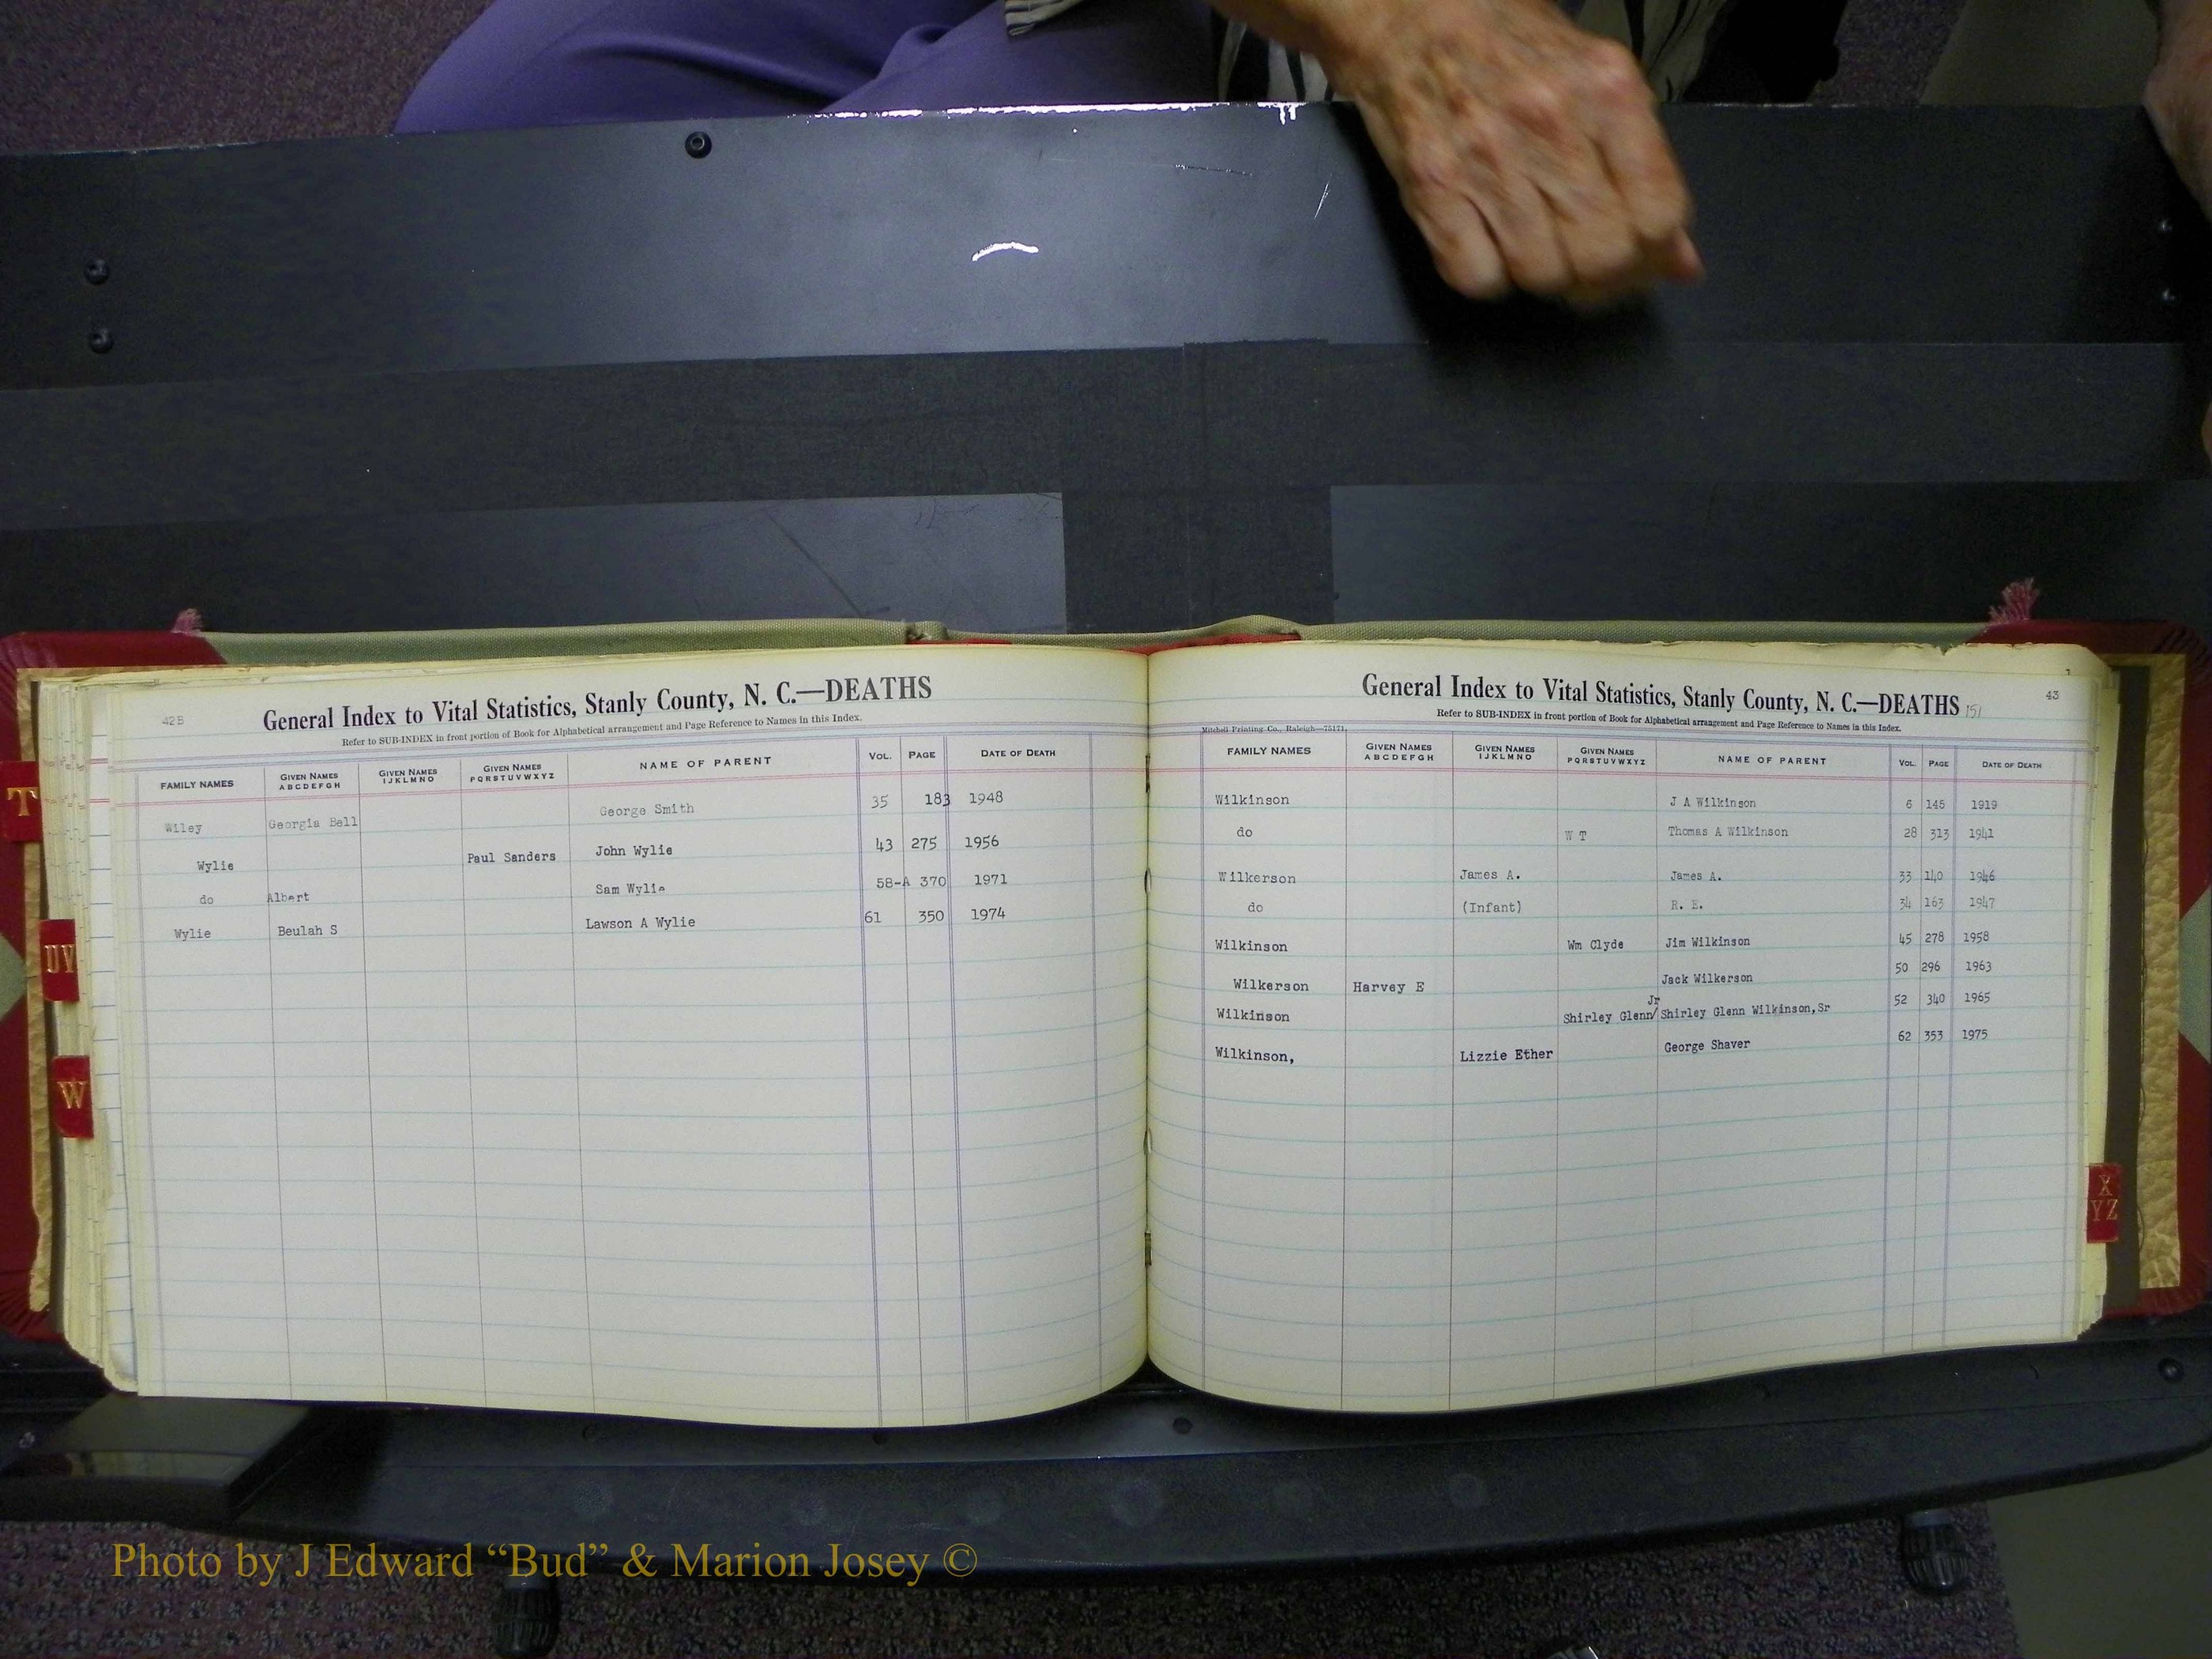 42B
General Index to Vital Statistics, Stanly County, N. C.—DEATHS
Refer to SUB-INDEX in front portion of Book for Alphabetical arrangement and Page Reference to Names in this Index.
FAMILY NAMES GIVEN NAMES ABCDEFGH GIVEN NAMES IJKLMNO GIVEN NAMES PQRSTUVWXYZ NAME OF PARENT VOL. PAGE DATE OF DEATH
Wiley Georgia Bell George Smith 35 183 1948
Wylie Paul Sanders John Wylie 43 275 1956
do Albert Sam Wylie 58-A 370 1971
Wylie Beulah S Lawson A Wylie 61 350 1974
T
UV
W
43
General Index to Vital Statistics, Stanly County, N. C.—DEATHS 151
Refer to SUB-INDEX in front portion of Book for Alphabetical arrangement and Page Reference to Names in this Index.
Mitchell Printing Co., Raleigh—75171.
FAMILY NAMES GIVEN NAMES ABCDEFGH GIVEN NAMES IJKLMNO GIVEN NAMES PQRSTUVWXYZ NAME OF PARENT VOL. PAGE DATE OF DEATH
Wilkinson J A Wilkinson 6 145 1919
do W T Thomas A Wilkinson 28 313 1941
Wilkerson James A. James A. 33 140 1946
do (Infant) R. E. 34 163 1947
Wilkinson Wm Clyde Jim Wilkinson 45 278 1958
Wilkerson Harvey E Jack Wilkerson 50 296 1963
Wilkinson Shirley Glenn/ Jr Shirley Glenn Wilkinson,Sr 52 340 1965
Wilkinson, Lizzie Ether George Shaver 62 353 1975
X
YZ
Photo by J Edward “Bud” & Marion Josey ©